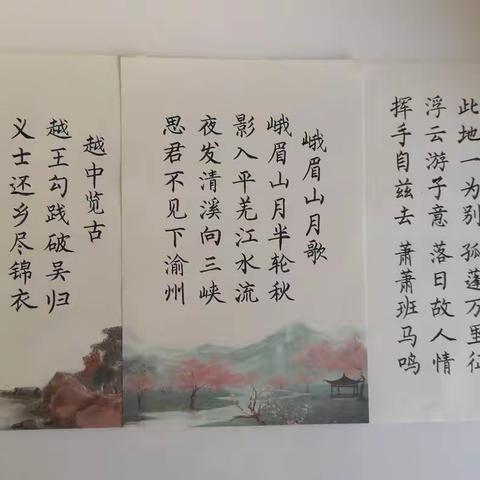 此地一为别 孤蓬万里征
浮云游子意 落日故人情
挥手自兹去 萧萧班马鸣
峨眉山月歌
峨眉山月半轮秋
影入平羌江水流
夜发清溪向三峡
思君不见下渝州
越中览古
越王勾践破吴归
义士还乡尽锦衣